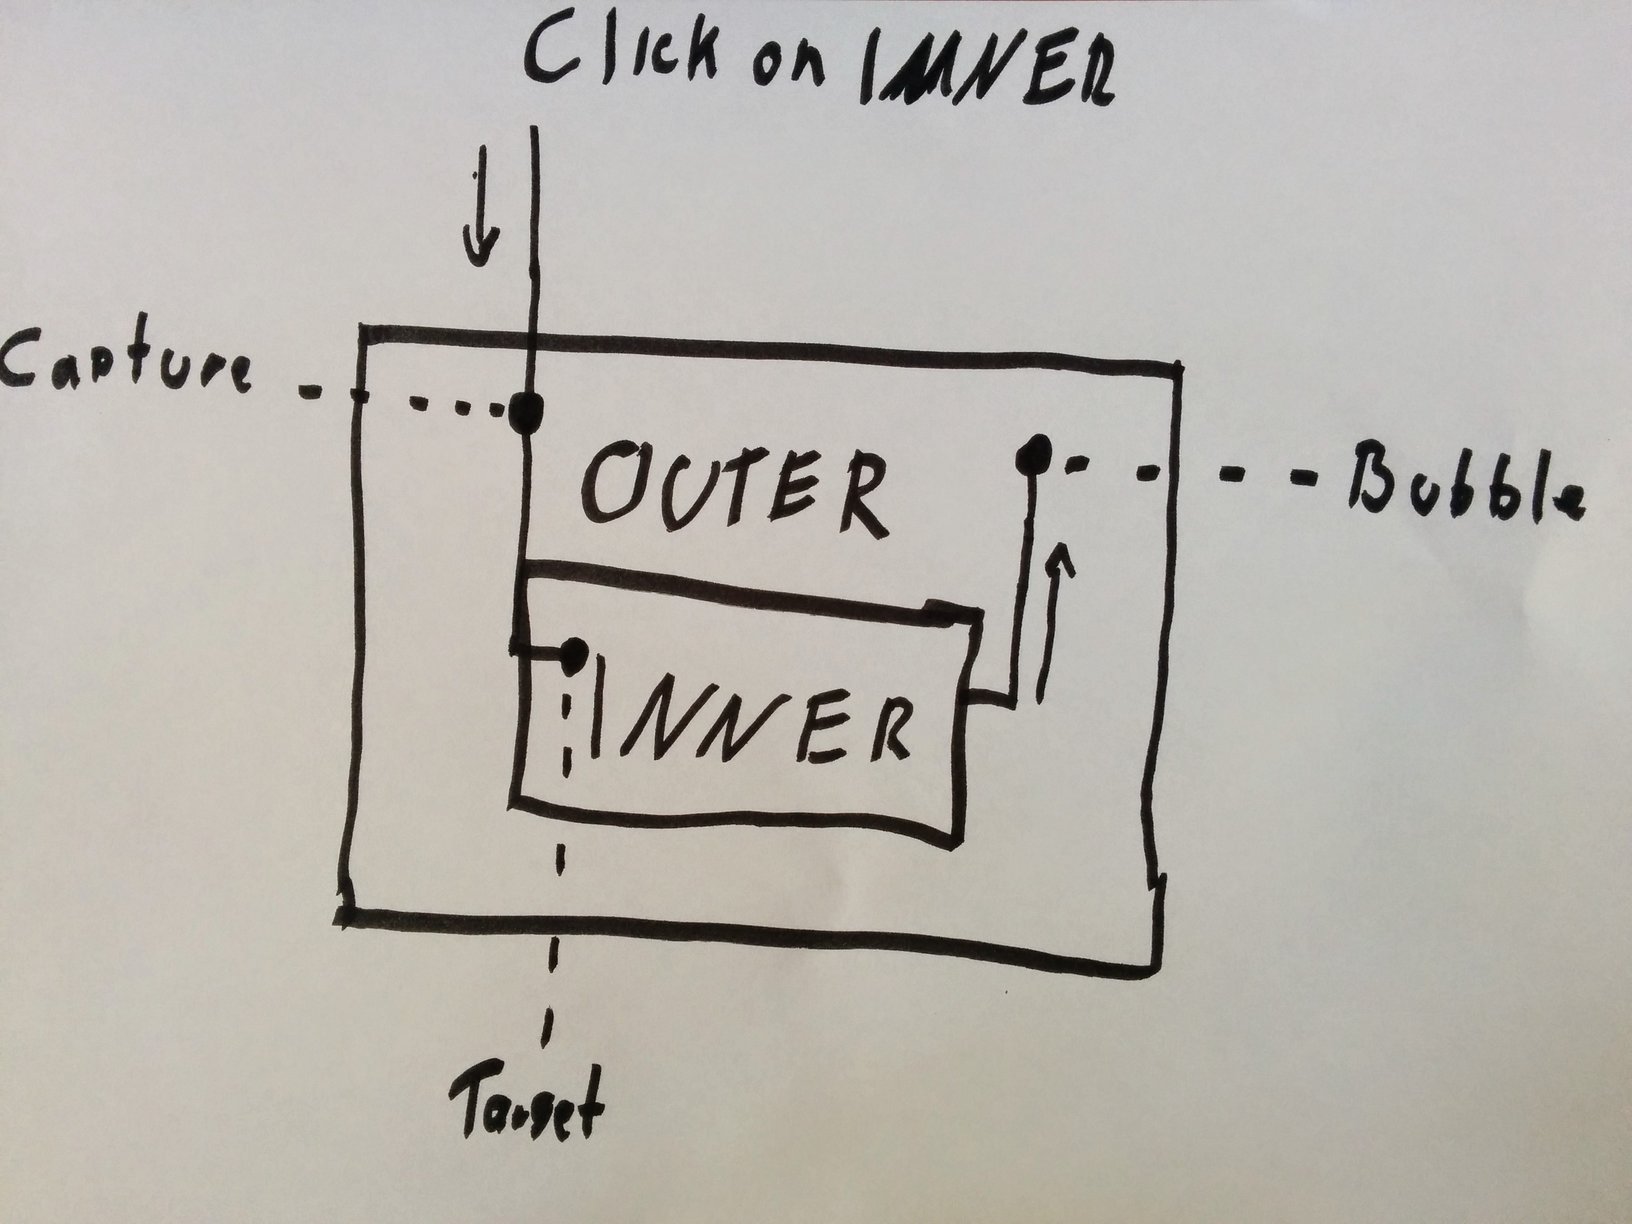 Click on INNER
Capture
OUTER
Bubble
INNER
Target